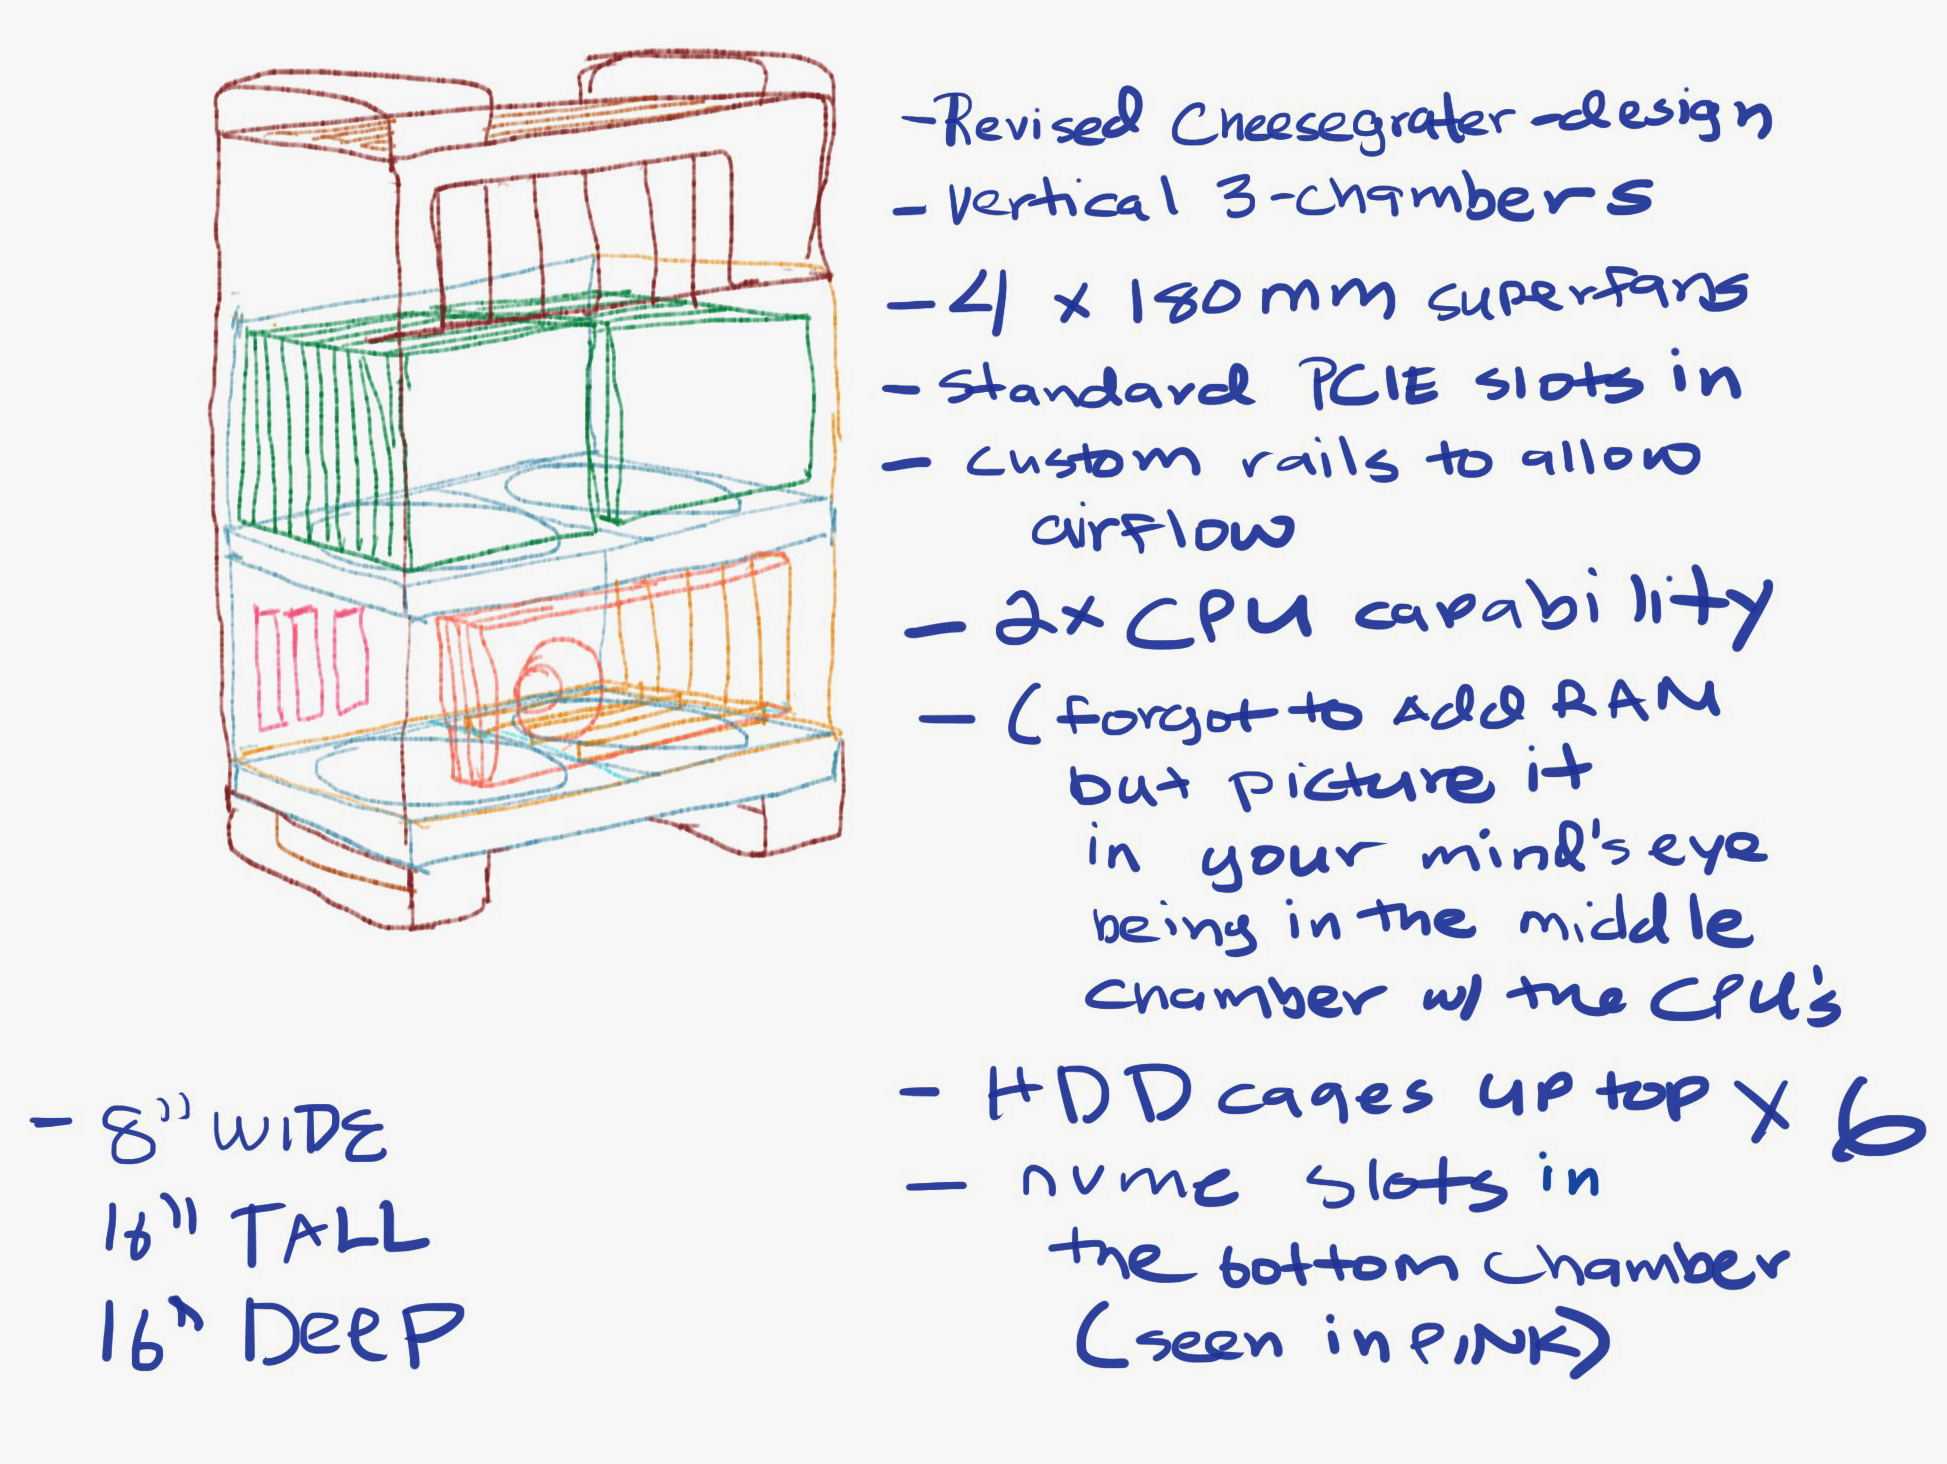 - Revised Cheesegrater-design
- Vertical 3-chambers
- 4 x 180mm superfans
- Standard PCIE slots in
- custom rails to allow
airflow
- 2x CPU capability
- (forgot to add RAM
but picture it
in your mind's eye
being in the middle
chamber w/ the CPU's
- HDD cages up top x 6
- nvme slots in
the bottom chamber
(seen in PINK)
- 8" WIDE
16" TALL
16" DEEP